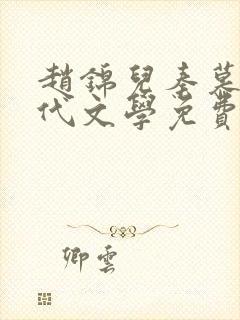 趙錦兒秦慕
代文學免費
卿雲